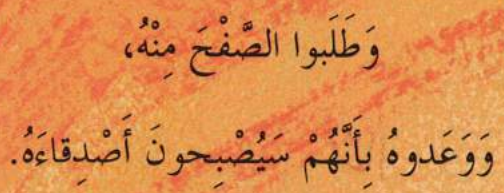 وَطَلَبوا الصَّفْحَ مِنْهُ،
وَوَعَدوهُ بِأَنَّهُمْ سَيُصْبِحونَ أَصْدِقاءَهُ.